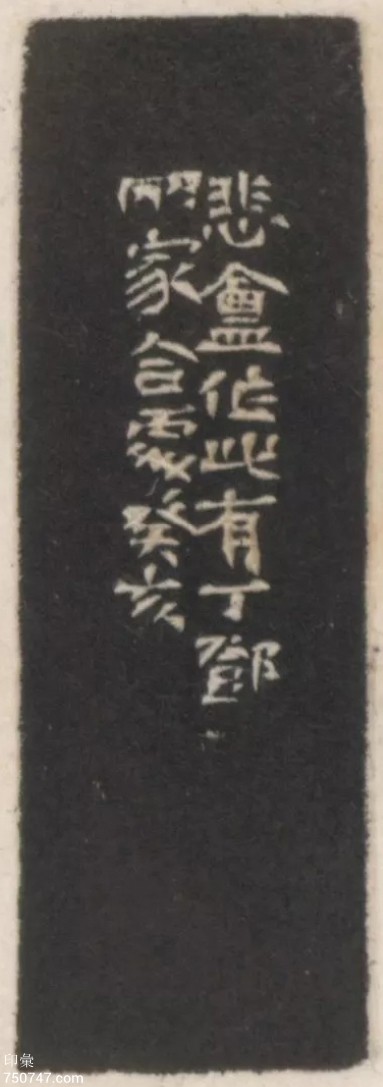 悲盦作此有丁鄧
兩家合處癸亥
印彙
750747.com